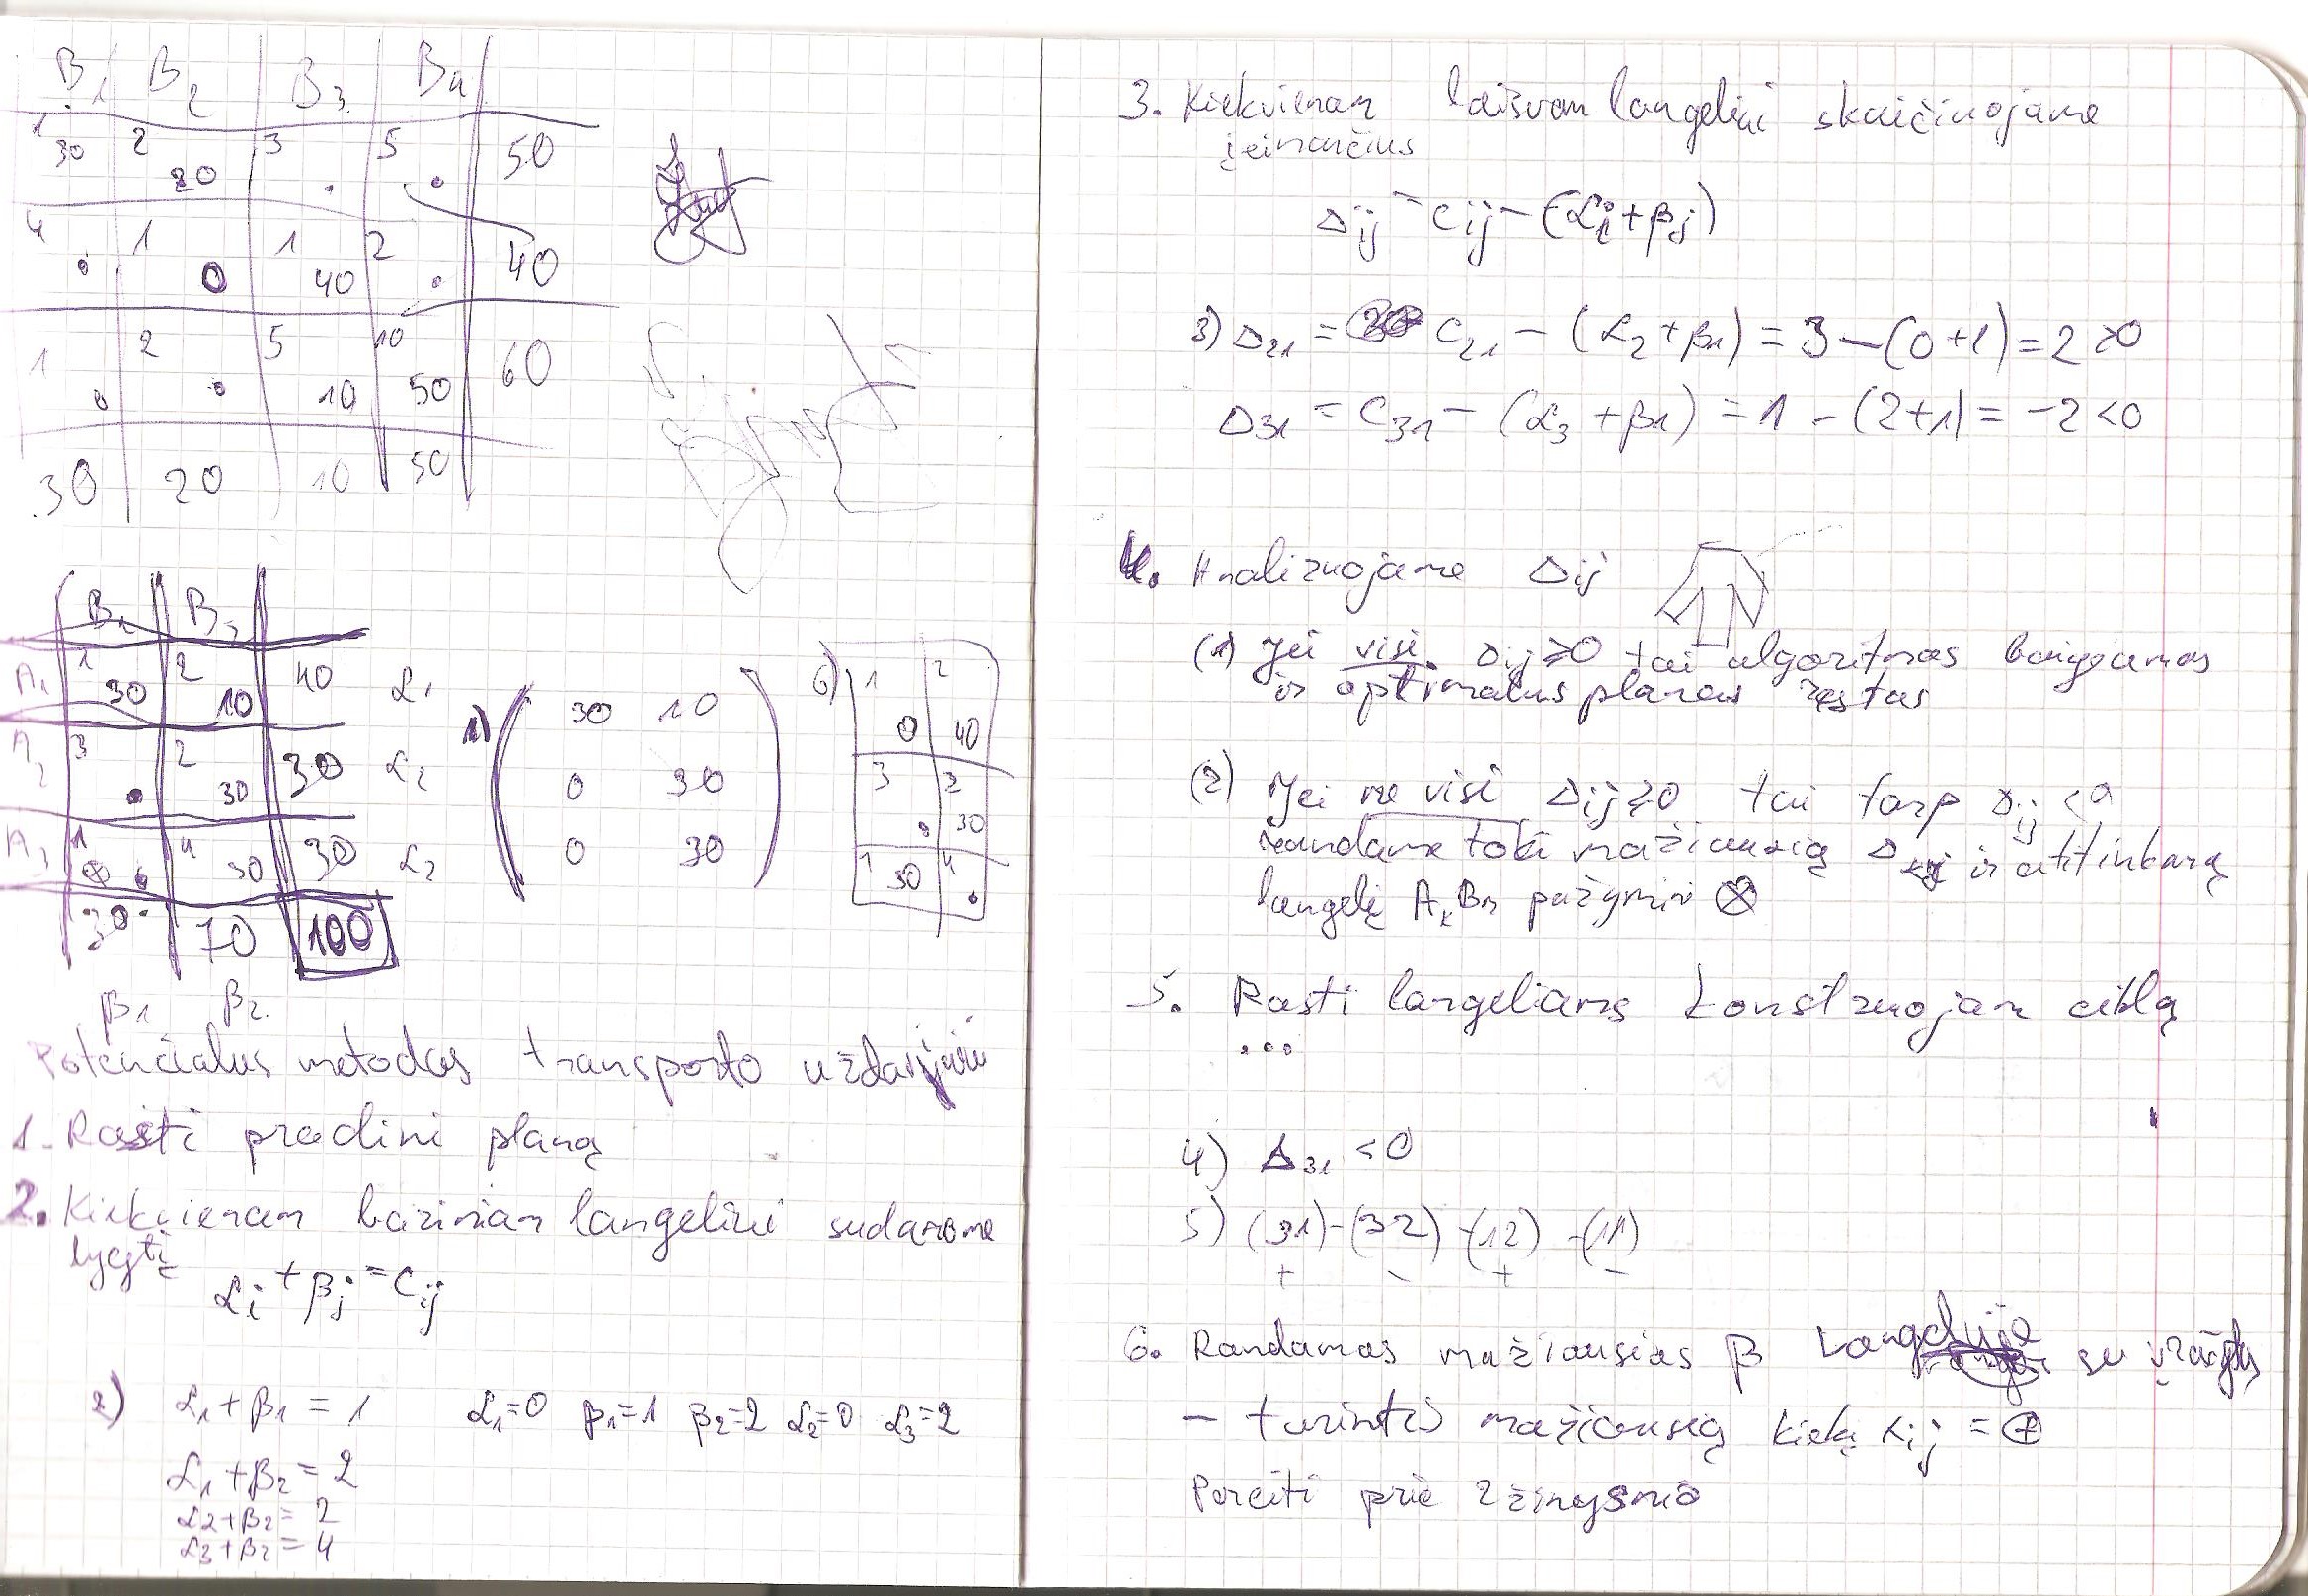 B1 B2 B3 B4
1 2 3 5 50
30 20 . .
4 1 1 2 40
. 0 40 .
1 2 5 10 60
. . 10 50
30 20 10 50
B1 B2
A1 1 30 2 10 40 α1
A2 3 . 2 30 30 α2
A3 1 ⊗ . 4 30 30
30 70 100
β1 β2
1) 30 10
0 30
0 30
6) 1 2
0 40
3 2
. 30
1 30 4 .
Potencialus metodas transporto
1. Rasti pradini planą
2. Kiekvienam baziniam langeliui sudarome
lygtį
αi + βj = cij
2) α1+β1 = 1 α1=0 β1=1 β2=2 α2=0 α3=2
α1+β2 = 2
α2+β2 = 2
α3+β2 = 4
3. Kiekvienam laisvam langeliui skaičiuojame
įeinančius
Δij = cij – (αi+βj)
3) Δ21 = C21 – (α2+β1) = 3 – (0+1) = 2 >0
Δ31 = C31 – (α3+β1) = 1 – (2+1) = -2 <0
4. Analizuojame Δij
(1) Jei visi Δij ≥0 tai algoritmas baigiamas
ir optimalus planas rastas
(2) Jei ne visi Δij ≥0 tai tarp Δij <0
randame tokį mažiausią Δ ir atitinkamą
langelį AkBn pažymim ⊗
5. Rasti langeliams konstruojam ciklą
...
4) Δ31 <0
5) (31)-(32)-(12)-(11)
+ - + -
6. Randamas mažiausias β langelyje su
– turintis mažiausią kiekį xij =
Pereiti prie 2 žingsnio